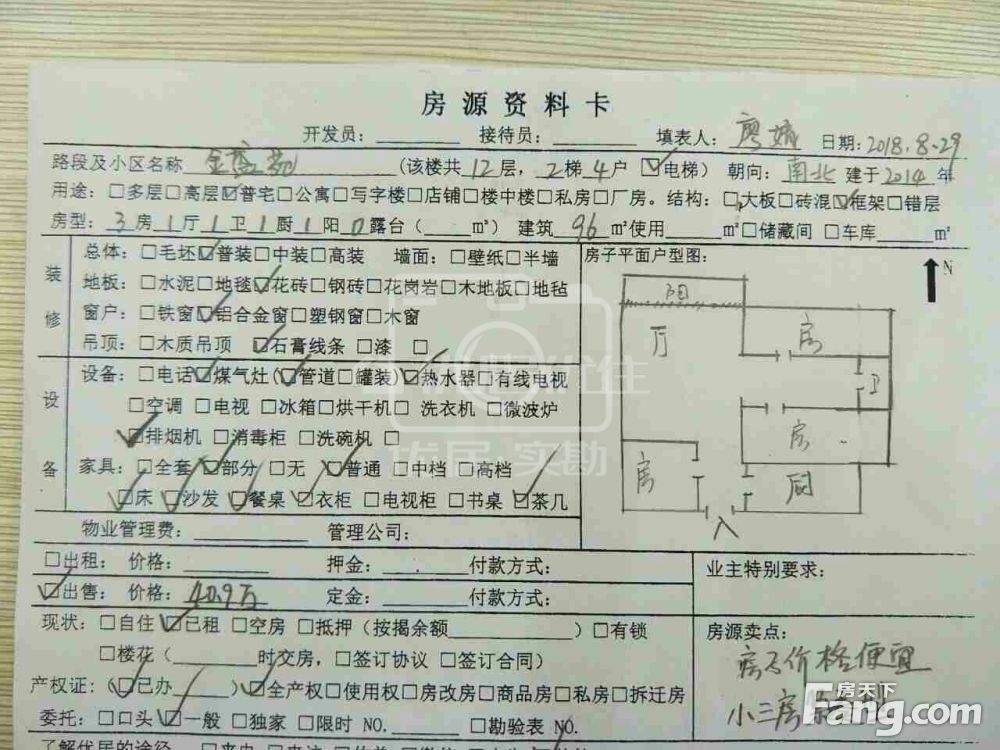 房源资料卡
开发员: 接待员: 填表人: 廖斌 日期: 2018.8.29
路段及小区名称 金 苑 (该楼共12层, 2梯4户 ☑电梯) 朝向: 南北 建于2014年
用途: □多层□高层☑普宅□公寓□写字楼□店铺□楼中楼□私房□厂房。结构: □大板□砖混☑框架□错层
房型: 3房1厅1卫1厨1阳0露台 ( m²) 建筑 96 m²使用 m²□储藏间 □车库 m²
装修
总体: □毛坯☑普装□中装□高装 墙面: □壁纸□半墙
地板: □水泥□地毯☑花砖□钢砖□花岗岩□木地板□地毡
窗户: □铁窗☑铝合金窗□塑钢窗□木窗
吊顶: □木质吊顶 ☑石膏线条□漆 □
设备
设备: □电话☑煤气灶(☑管道□罐装)☑热水器□有线电视
□空调 □电视 □冰箱□烘干机□ 洗衣机 □微波炉
☑排烟机 □消毒柜 □洗碗机 □
家具: □全套☑部分 □无 ☑普通 □中档 □高档
☑床 ☑沙发 ☑餐桌 ☑衣柜 □电视柜 □书桌 ☑茶几
物业管理费: 管理公司:
房子平面户型图:
N
阳
厅
房
卫
房
房
厨
入
□出租: 价格: 押金: 付款方式:
☑出售: 价格: 40.9万 定金: 付款方式:
现状: □自住 ☑已租 □空房 □抵押 (按揭余额 ) □有锁
□楼花 ( 时交房, □签订协议 □签订合同)
产权证: (☑已办 ) ☑全产权□使用权□房改房□商品房□私房□拆迁房
委托: □口头 ☑一般 □独家 □限时 NO. □勘验表 NO.
业主特别要求:
房源卖点:
房子价格便宜
小三房
优居·实勘
房天下
Fang.com